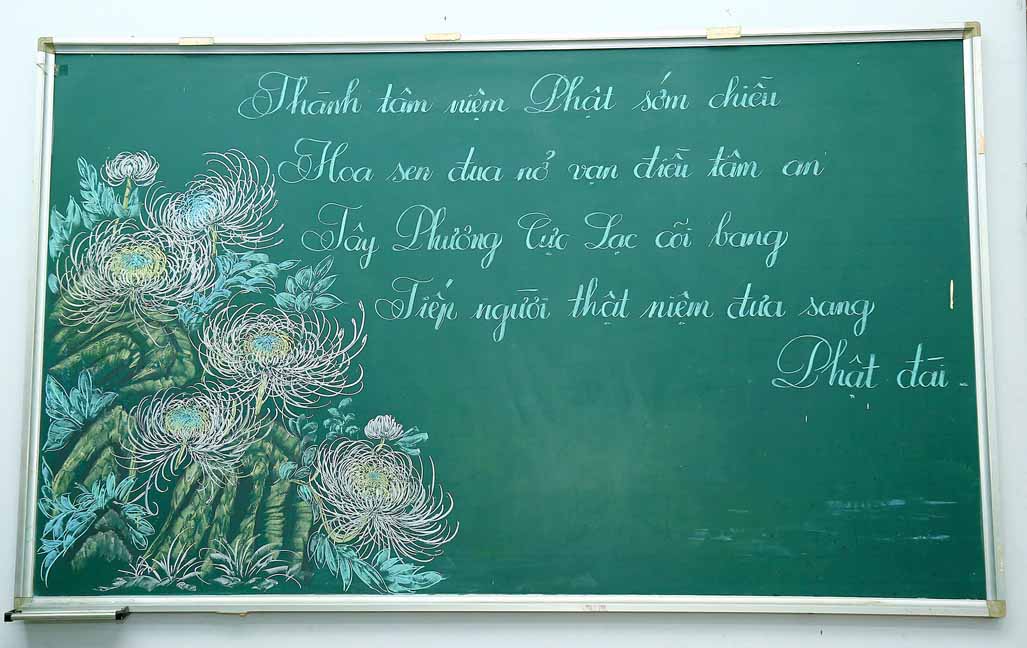 Thành tâm niệm Phật sớm chiều
Hoa sen đua nở vạn điều tâm an
Tây Phương Cực Lạc cõi bang
Tiếp người thật niệm đưa sang
Phật đài.